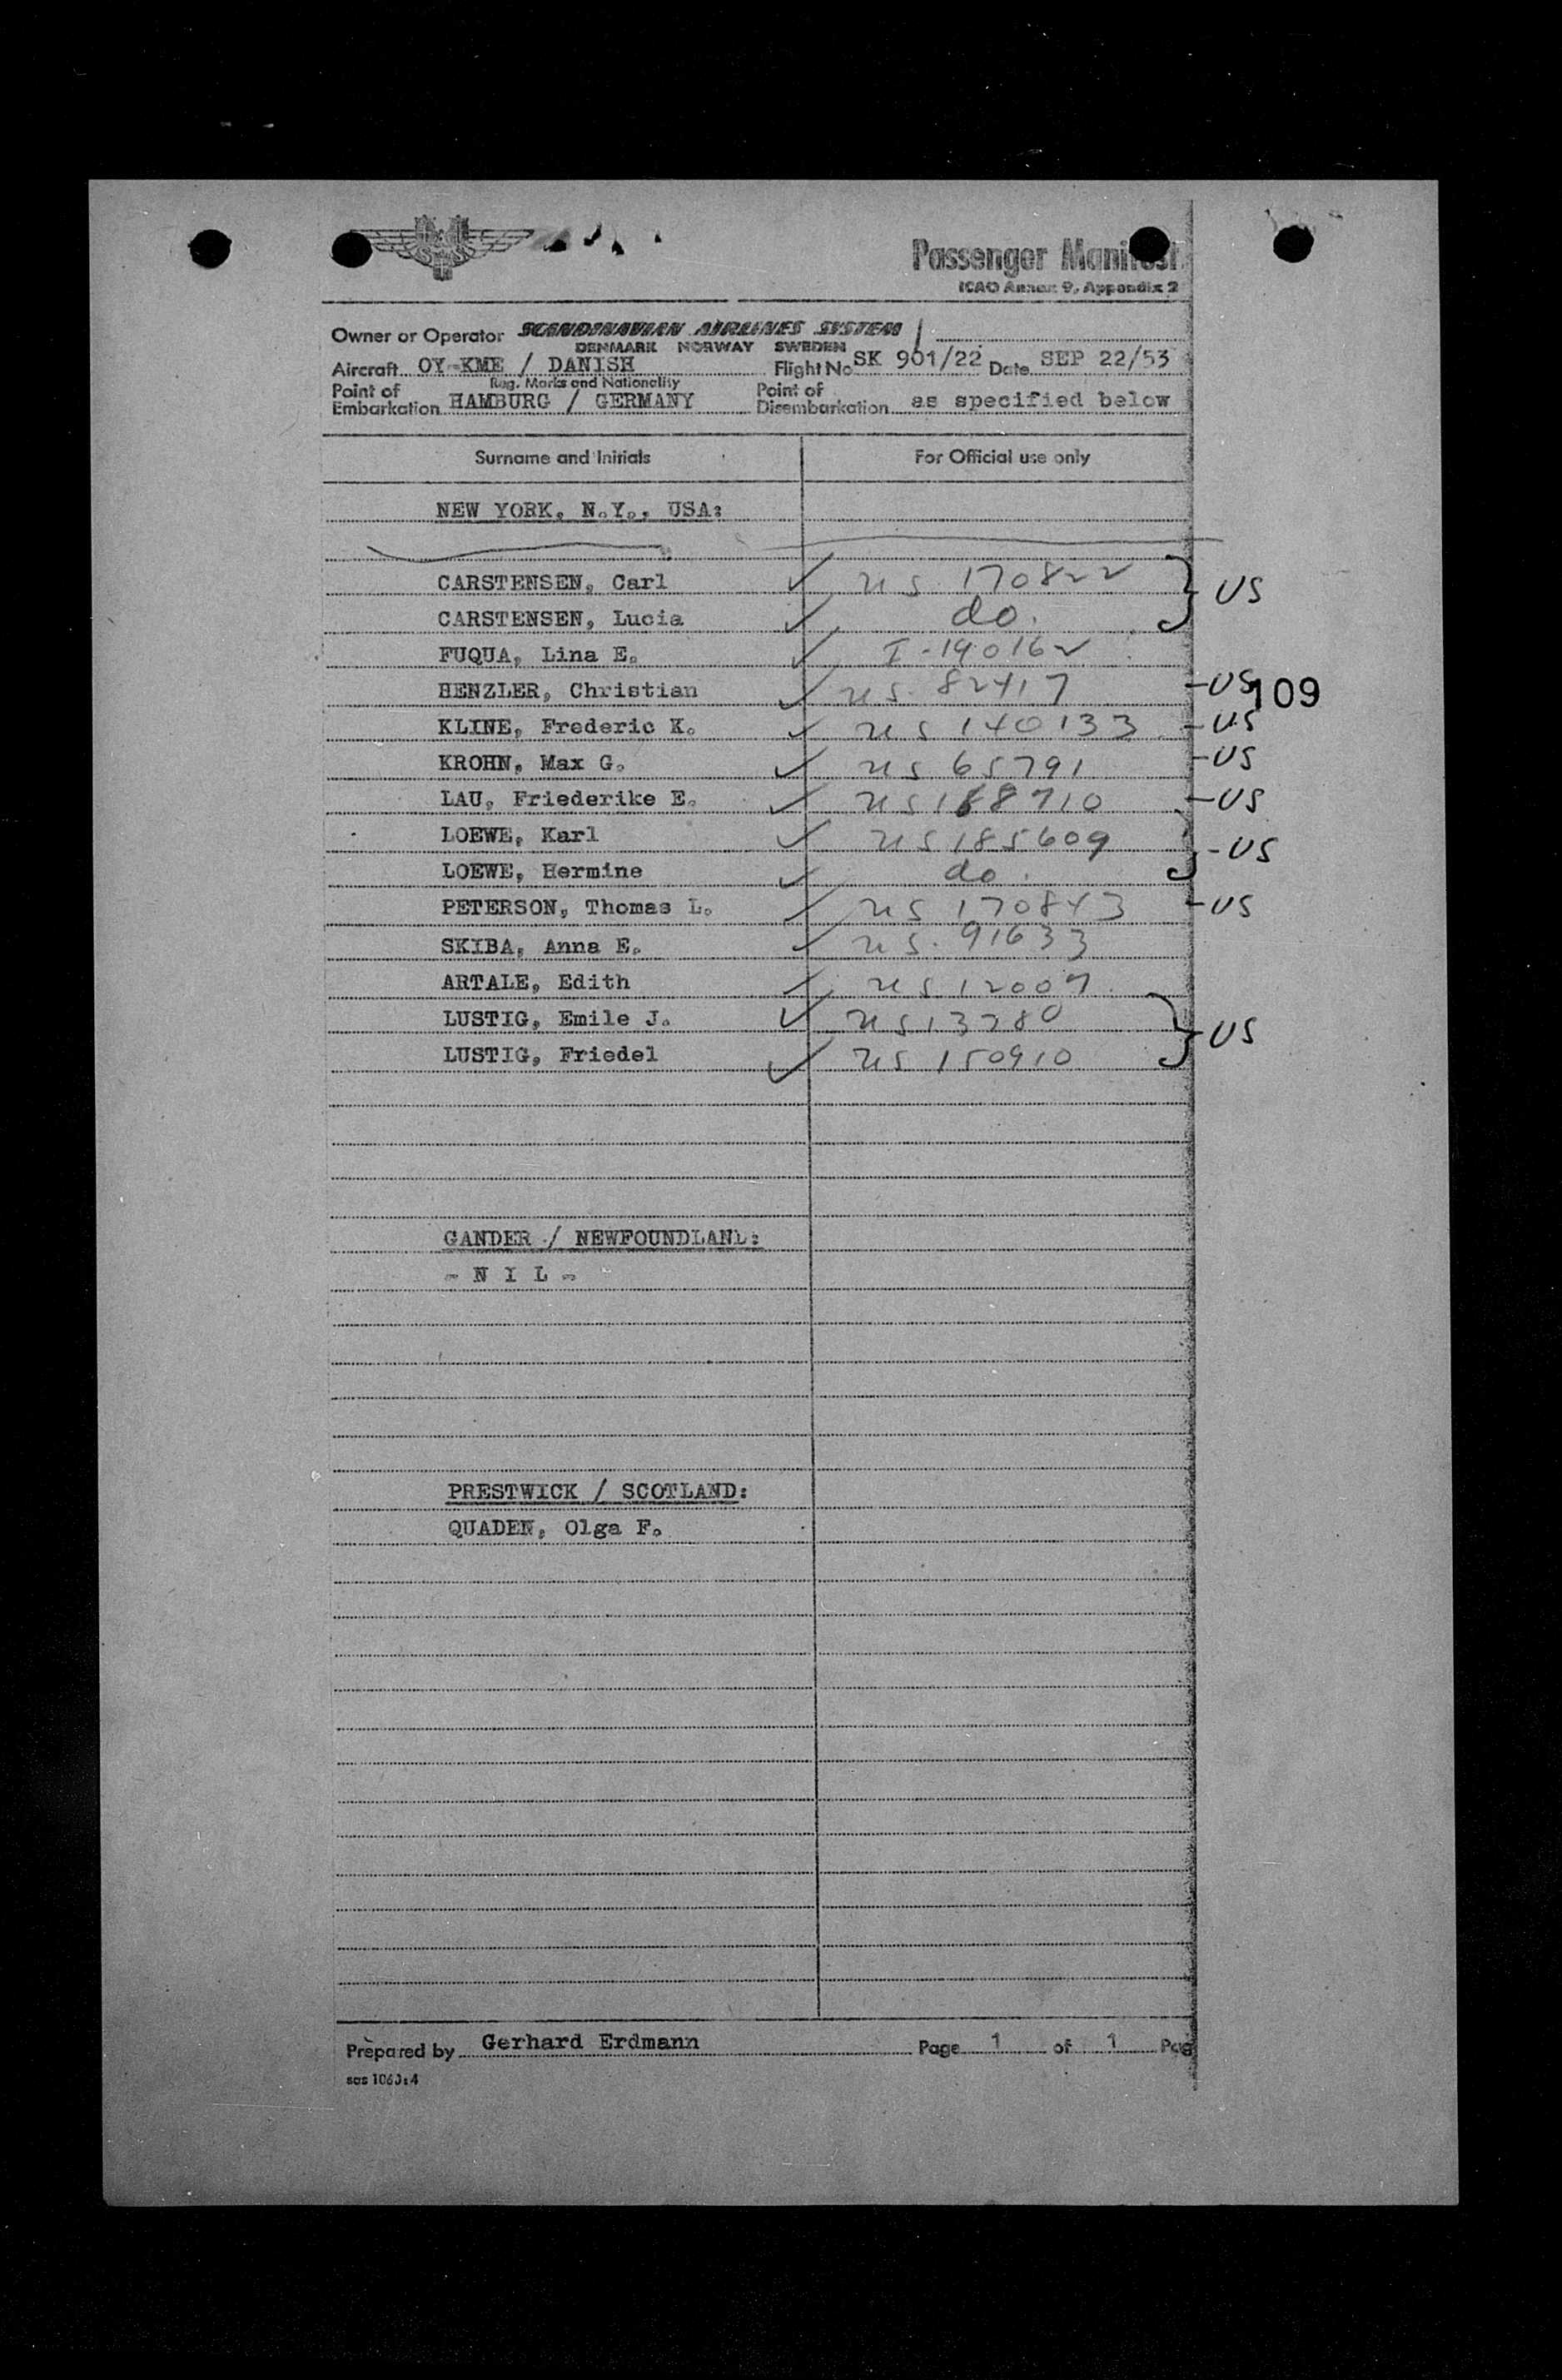 Passenger Manifest
ICAO Annex 9, Appendix 2
Owner or Operator SCANDINAVIAN AIRLINES SYSTEM
DENMARK NORWAY SWEDEN
Aircraft OY-KME / DANISH Flight No SK 901/22 Date SEP 22/53
Reg. Marks and Nationality
Point of Embarkation HAMBURG / GERMANY Point of Disembarkation as specified below
Surname and Initials For Official use only
NEW YORK, N.Y., USA:
CARSTENSEN, Carl ✓ US 170822 } US
CARSTENSEN, Lucia ✓ do.
FUQUA, Lina E. ✓ I-190162
HENZLER, Christian ✓ US. 82417 -US 109
KLINE, Frederic K. ✓ US 140133 -US
KROHN, Max G. ✓ US 65791 -US
LAU, Friederike E. ✓ US 188710 -US
LOEWE, Karl ✓ US 185609 } -US
LOEWE, Hermine ✓ do.
PETERSON, Thomas L. ✓ US 170843 -US
SKIBA, Anna E. ✓ US. 91633
ARTALE, Edith ✓ US 12007
LUSTIG, Emile J. ✓ US 13280 } US
LUSTIG, Friedel ✓ US 150910
GANDER / NEWFOUNDLAND:
- N I L -
PRESTWICK / SCOTLAND:
QUADEN, Olga F.
Prepared by Gerhard Erdmann Page 1 of 1 Pag
sas 1063:4